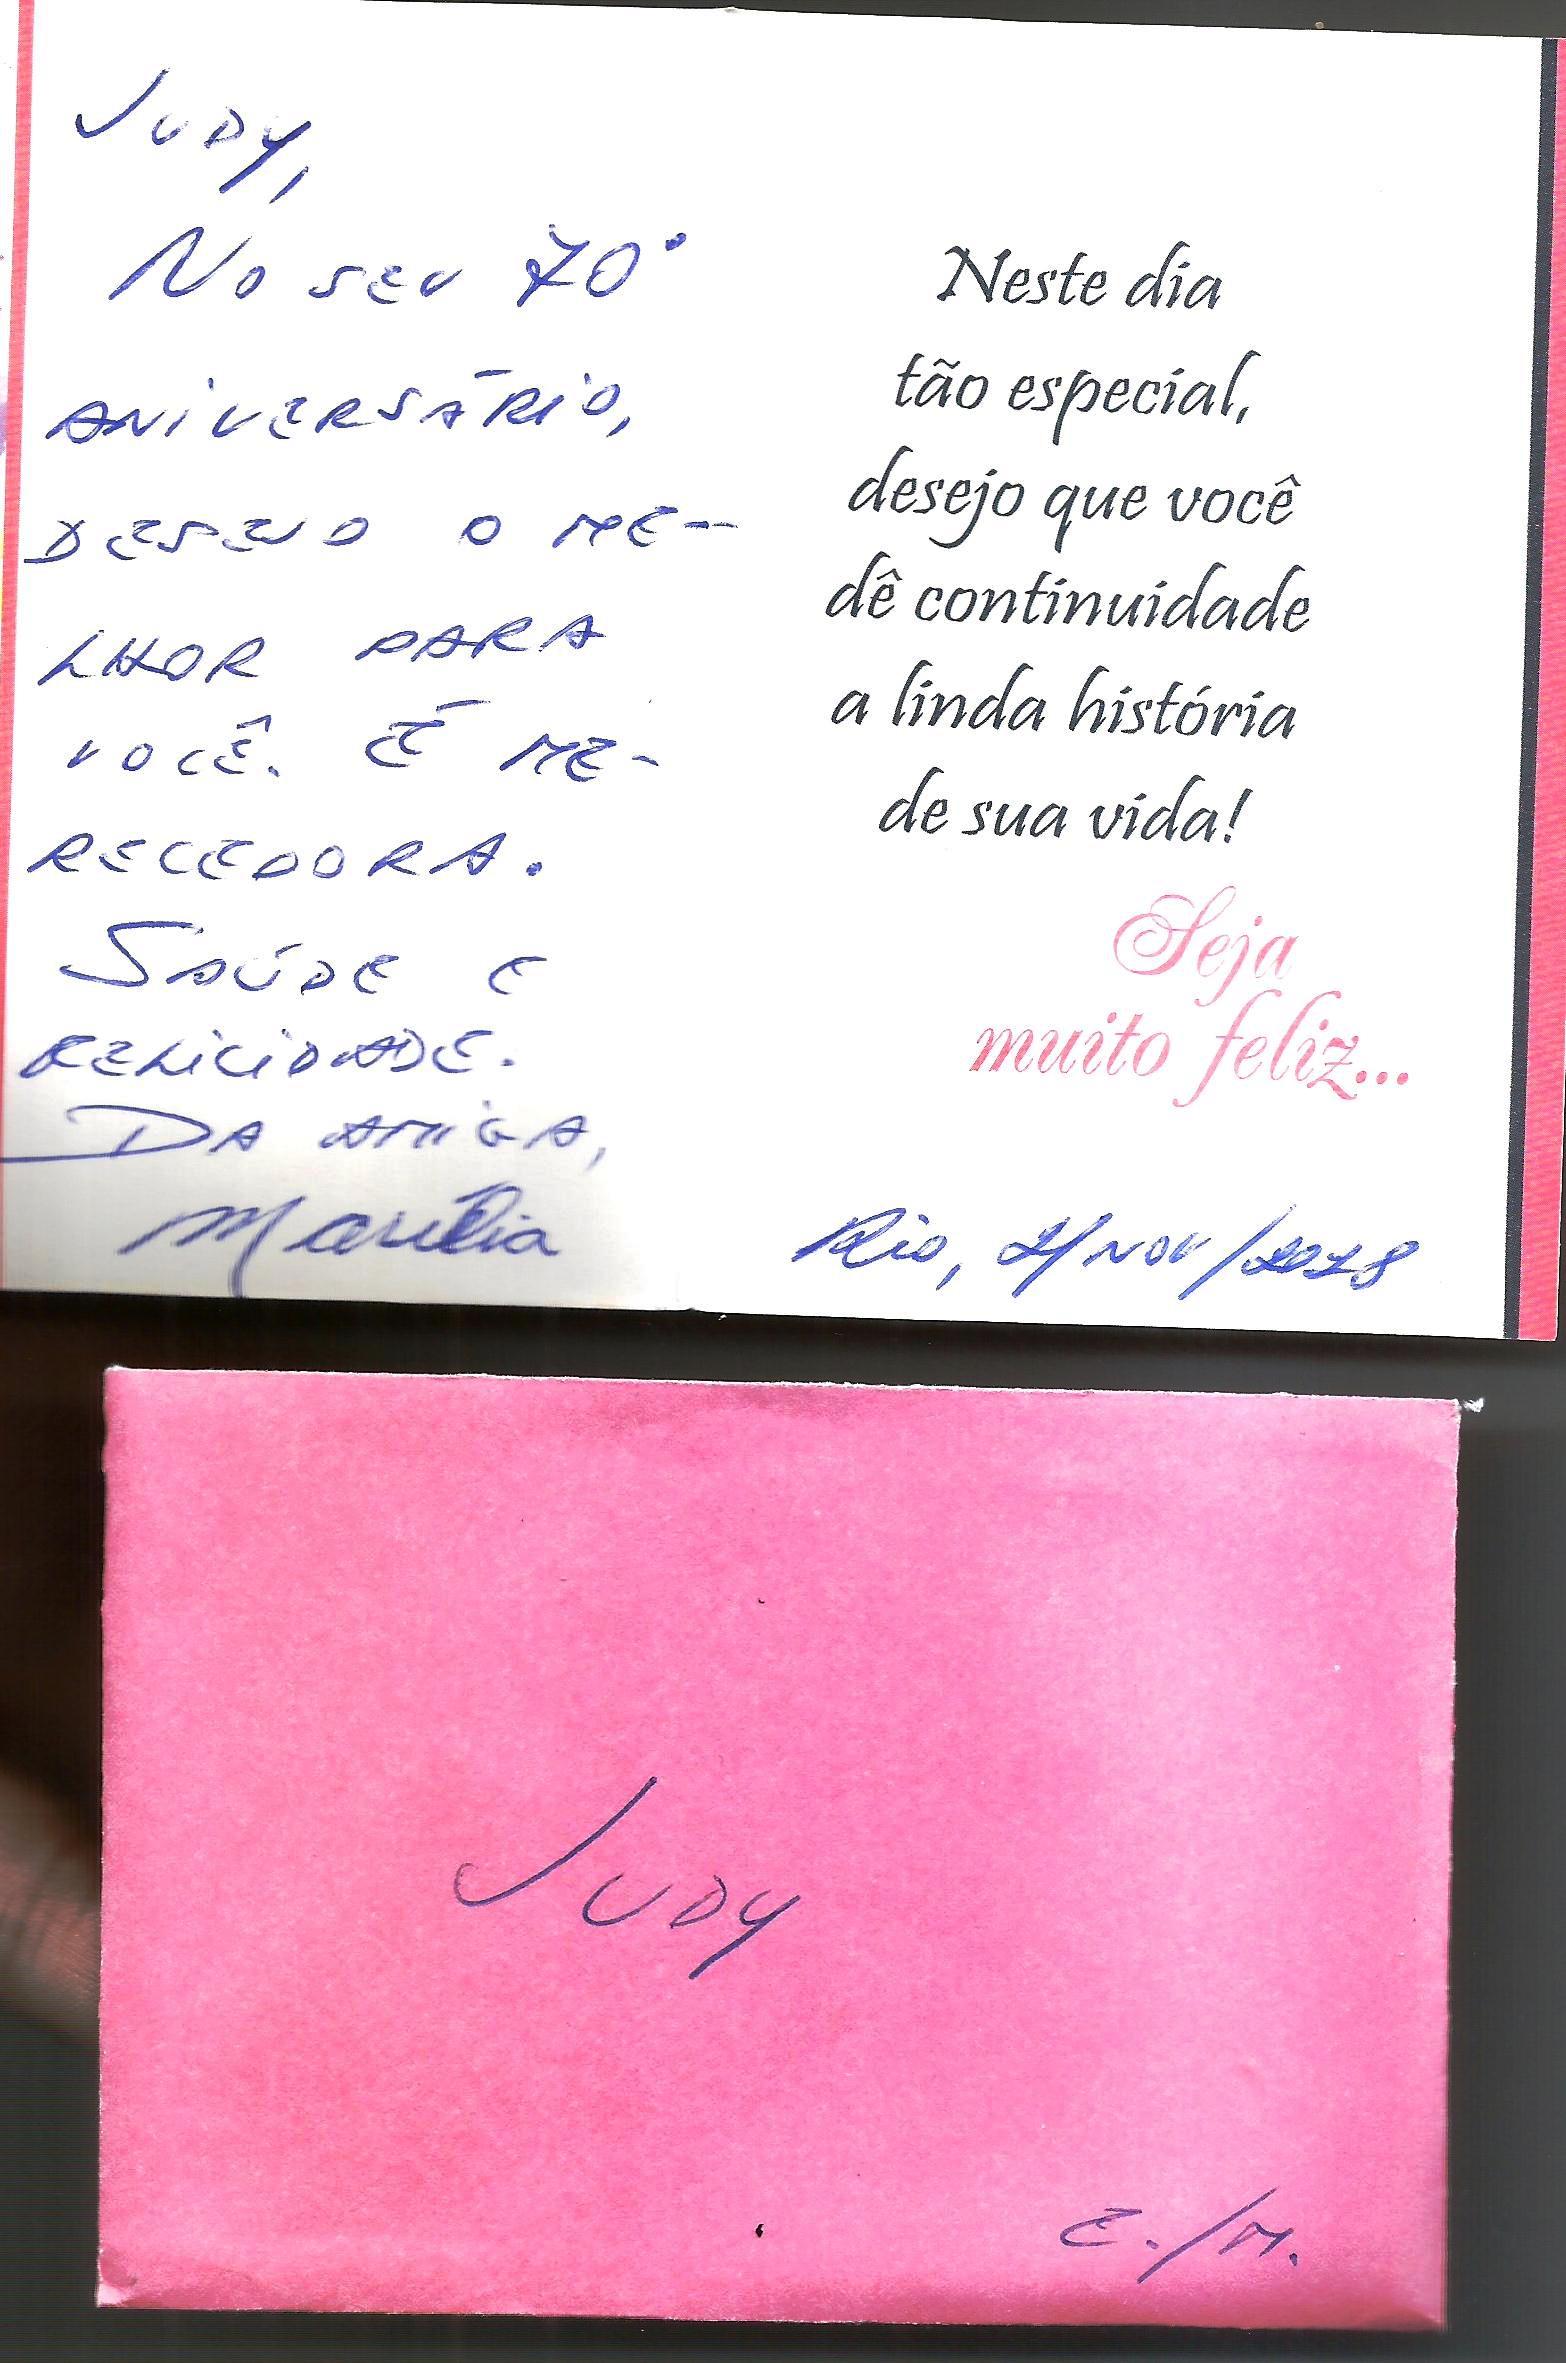 Judy,
No seu 70°
ANIVERSÁRIO,
DESEJO O ME-
LHOR PARA
VOCÊ. É ME-
RECEDORA.
SAÚDE E
FELICIDADE.
DA AMIGA,
Marília
Neste dia
tão especial,
desejo que você
dê continuidade
a linda história
de sua vida!
Seja
muito feliz...
Rio, 21/NOV/2018
JUDY
E./M.